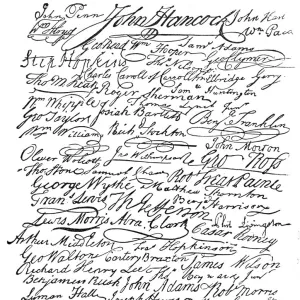 John Penn John Hancock John Hart
Wm Floyd Wm Paca
Geo Read Wm Hooper Saml Adams
Step Hopkins Thos Nelson jr Geo Clymer
Charles Carroll of Carrollton Elbridge Gerry
Thos M:Kean Roger Sherman Saml Huntington
Wm Whipple Thomas Lynch Junr
Geo Taylor Josiah Bartlett Benj Franklin
Wm Williams Richd Stockton
John Morton
Oliver Wolcott Jas Smith Geo Ross
Thos Stone Samuel Chase Robt Treat Paine
George Wythe Matthew Thornton
Frans Lewis Th Jefferson Benj Harrison
Lewis Morris Abra Clark Phil Livingston
Caesar Rodney
Arthur Middleton Fras Hopkinson
Geo Walton Carter Braxton James Wilson
Richard Henry Lee Thos Heyward Junr
Benjamin Rush John Adams Robt Morris
Lyman Hall